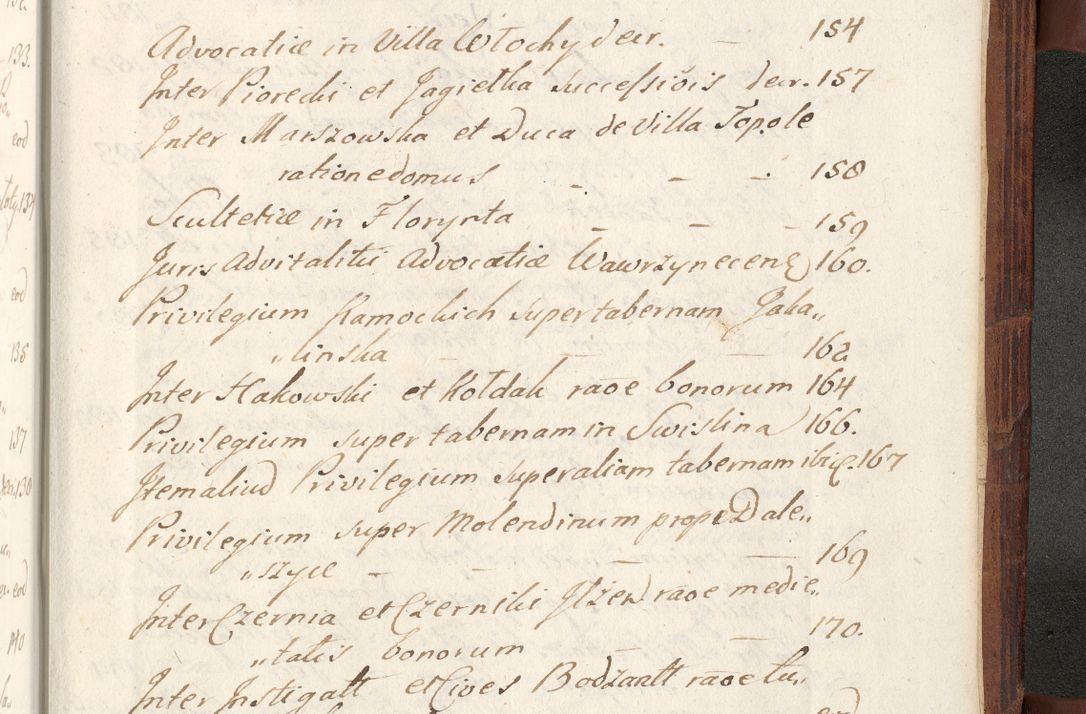 Advocatiæ in Villa Włochy decr. — 154
Inter Pioredii et Jagiełka Successivis decr. 157
Inter Marszowska et Duca de Villa Topole
ratione domus - - - 158
Scultetiæ in Florynta - - - 159
Juris Advitalitii Advocatiæ Wawrzynecenę 160.
Privilegium Kamockich super tabernam Jaka„
„linska — — — 162
Inter Hakowski et Kołdak raõe bonorum 164
Privilegium super tabernam in Swislina 166.
Item aliud Privilegium super aliam tabernam ibiq. 167
Privilegium super Molendinum prope Dale„
„szyce - - - — 169
Inter Czernia et Czerniki Itżen raõe medie„
„tatis bonorum — — 170.
Inter Instigatt et Cives Bodzantt raõe tu„
eod
133.
eod
135
137
eod
140